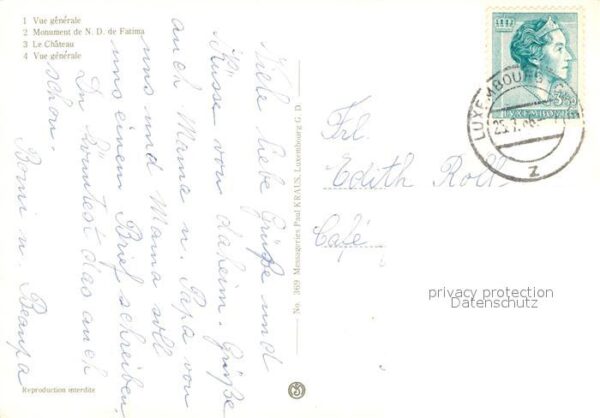 1 Vue générale
2 Monument de N. D. de Fatima
3 Le Château
4 Vue générale
Viele liebe Grüße und
Küsse von daheim. Grüße
auch Mama u. Papa von
uns und Mama soll
uns einem Brief schreiben,
Du könntest das auch
schon.
Bomi u. Beaupa
Reproduction interdite
No. 369 Messageries Paul KRAUS, Luxembourg G. D.
Frl.
Edith Roll
Café
LUXEMBOURG
LUXEMBOURG
25.7.
z
privacy protection
Datenschutz